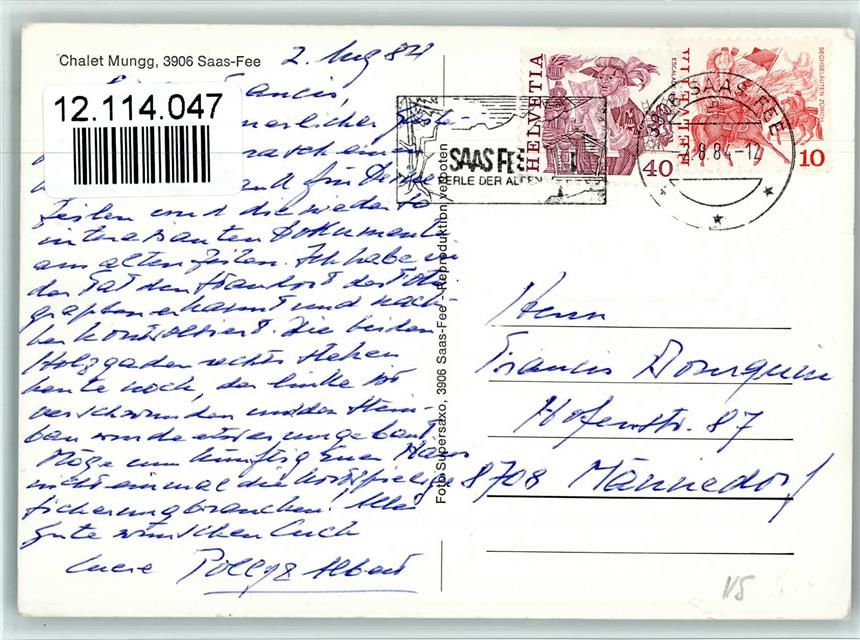 Chalet Mungg, 3906 Saas-Fee
2. Aug 84
12.114.047
rasch einen
und für Deine
Zeilen und die wieder so
interessanten Dokumente
aus alten Zeiten. Ich habe in
der Tat den Standort des Foto-
graphen erkannt und nach-
her kontrolliert. Die beiden
Holzgaden rechts stehen
heute noch, der linke ist
verschwunden und der Stein-
bau wurde etwas umgebaut.
Möge nun künftig Euer Haus
nicht einmal die kostspielige
sicherung brauchen! Alles
Gute wünschen Euch
Albert
Foto Supersaxo, 3906 Saas-Fee - Reproduktion verboten
SAAS FEE
PERLE DER ALPEN
HELVETIA
40
HELVETIA
SECHSELÄUTEN ZÜRICH
10
3906 SAAS-FEE
2.8.84-12
Herrn
Francis Bourquin
Hofenstr. 87
8708 Männedorf
NS